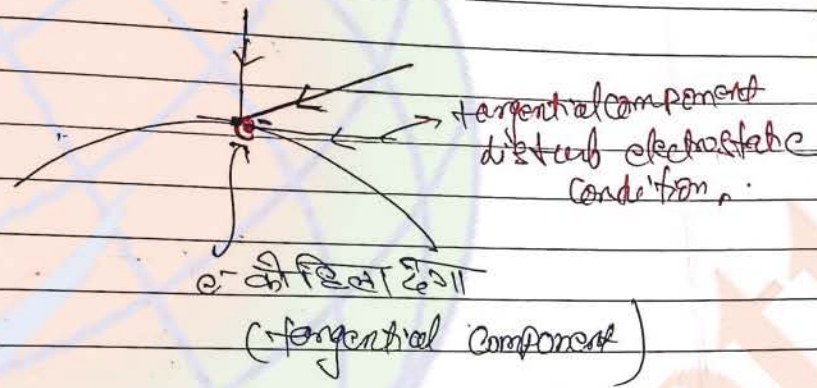 tangential component
disturb electrostatic
condition.
e⁻ को हिला देगा
(tangential component)